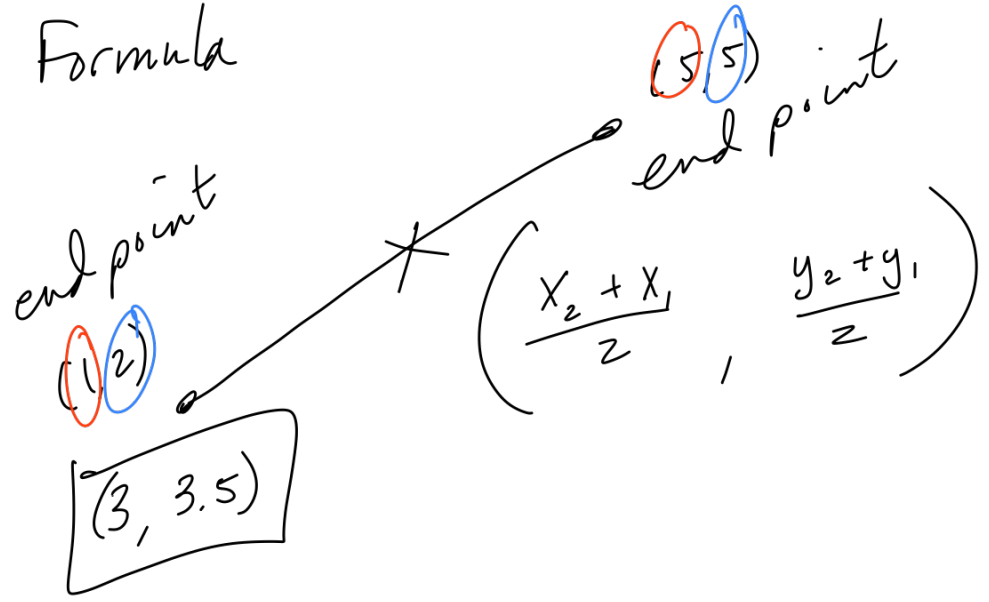 Formula
(5, 5)
end point
end point
(1, 2)
(x₂ + x₁ / 2 , y₂ + y₁ / 2)
(3, 3.5)